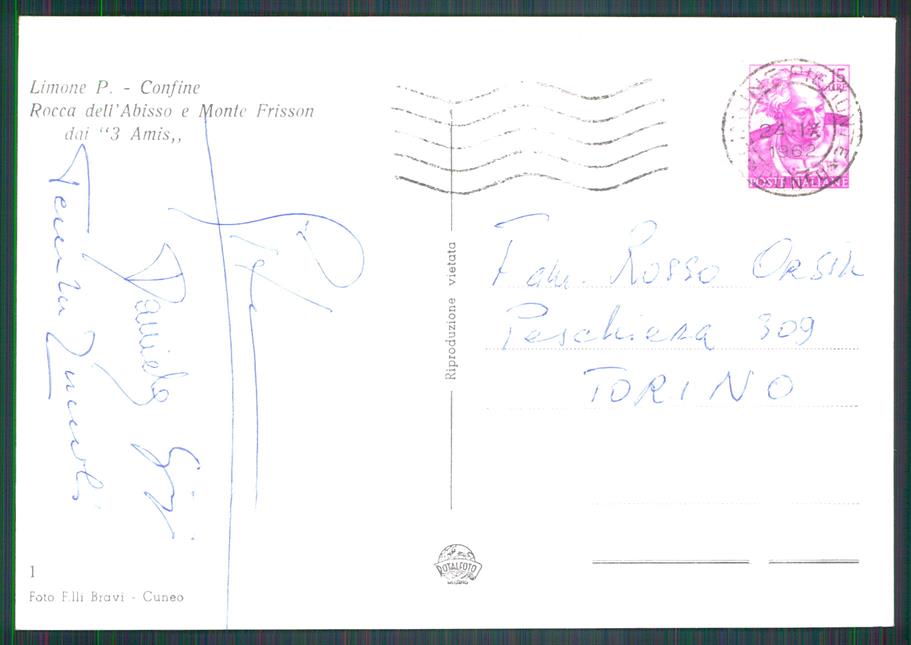 Limone P. - Confine
Rocca dell'Abisso e Monte Frisson
dai "3 Amis,,
15
LIRE
24-IX
1962
POSTE ITALIANE
Riproduzione vietata
Fam. Rosso Orsin
Peschiera 309
TORINO
Daniela
ROTALFOTO
MILANO
1
Foto F.lli Bravi - Cuneo